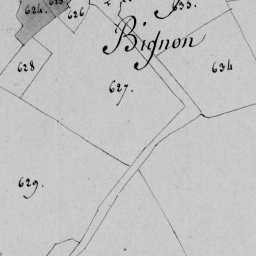 624.
626
633.
Bignon
634
628
627.
629.